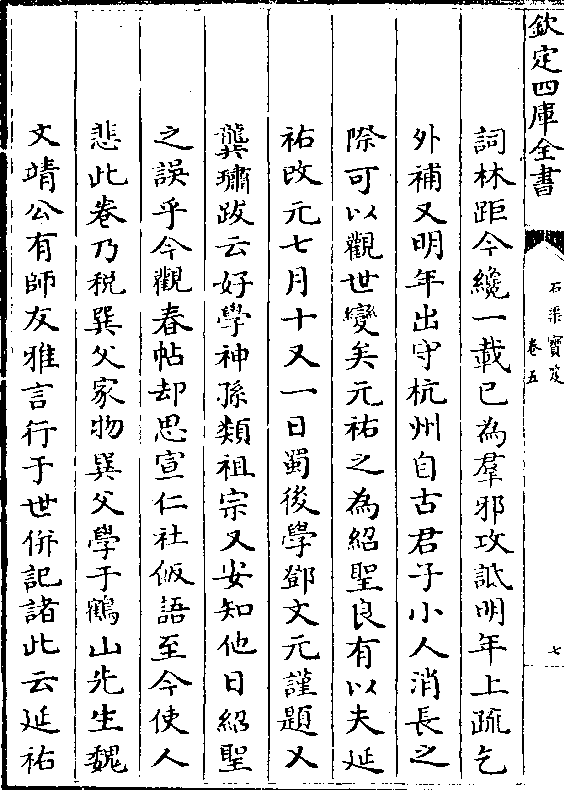 欽定四庫全書
石渠寶笈
卷五
七
詞林距今纔一載已為羣邪攻詆明年上疏乞
外補又明年出守杭州自古君子小人消長之
際可以觀世變矣元祐之為紹聖良有以夫延
祐改元七月十又一日蜀後學鄧文元謹題又
龔璛跋云好學神孫類祖宗又安知他日紹聖
之誤乎今觀春帖却思宣仁社飯語至今使人
悲此卷乃税巽父家物巽父學于鶴山先生魏
文靖公有師友雅言行于世併記諸此云延祐